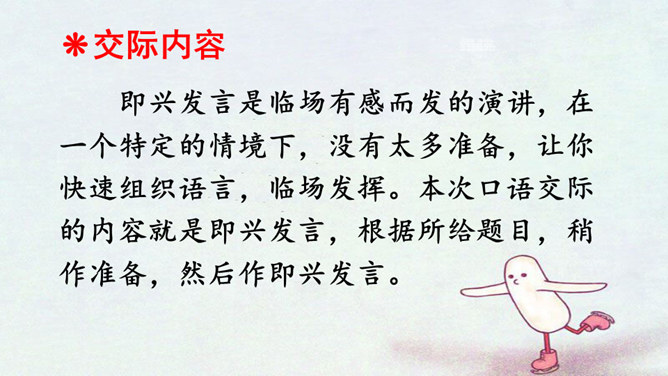 交际内容
即兴发言是临场有感而发的演讲，在
一个特定的情境下，没有太多准备，让你
快速组织语言，临场发挥。本次口语交际
的内容就是即兴发言，根据所给题目，稍
作准备，然后作即兴发言。